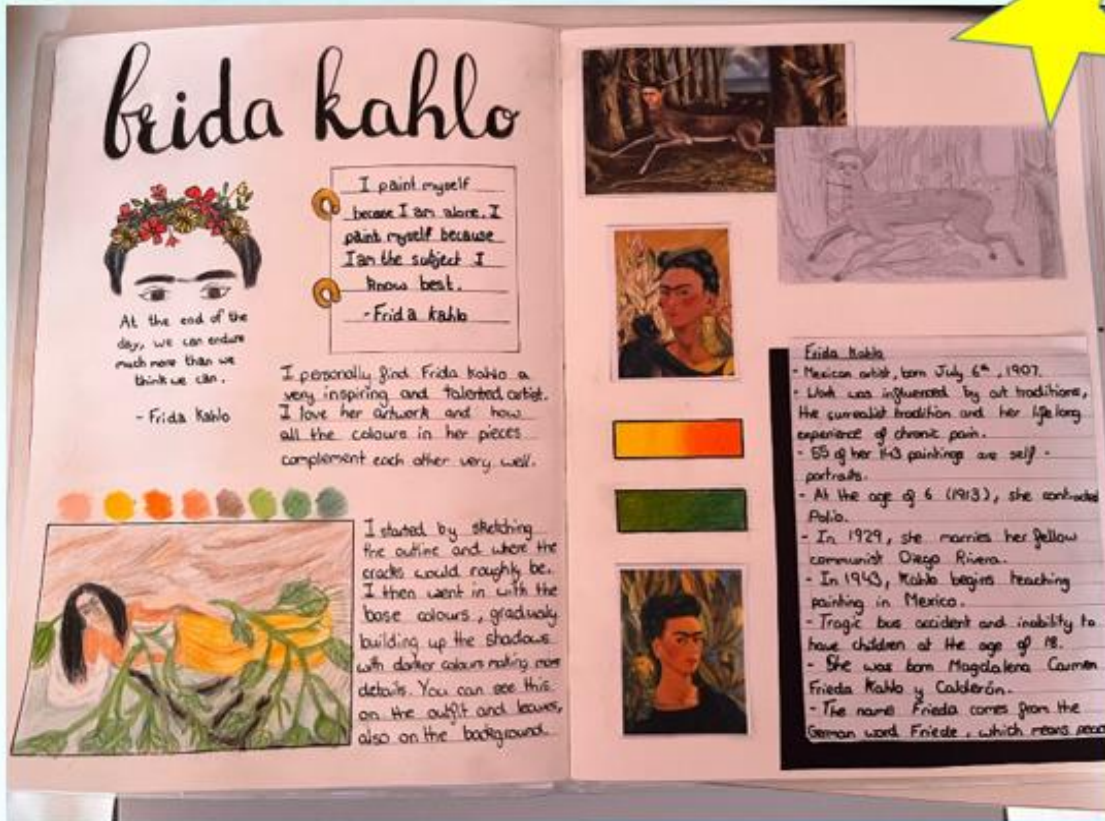 frida kahlo
I paint myself
becose I am alone. I
paint myself because
I am the subject I
know best.
- Frida kahlo
At the end of the
day, we can endure
much more than we
think we can.
- Frida Kahlo
I personally find Frida Kahlo a
very inspiring and talented artist.
I love her artwork and how
all the colours in her pieces
complement each other very well.
I started by sketching
the outline and where the
cracks would roughly be.
I then went in with the
base colours, gradualy
building up the shadows
with darker colours making more
details. You can see this
on the outfit and leaves,
also on the background.
Frida Kahlo
- Mexican artist, born July 6th, 1907.
- Work was influenced by art traditions,
the surrealist tradition and her life long
experience of chronic pain.
- 55 of her 143 paintings are self -
portraits.
- At the age of 6 (1913), she contracted
Polio.
- In 1929, she marries her fellow
communist Diego Rivera.
- In 1943, Kahlo begins teaching
painting in Mexico.
- Tragic bus accident and inability to
have children at the age of 18.
- She was born Magdalena Carmen
Frieda Kahlo y Calderón.
- The name Frieda comes from the
German word Friede, which means peac